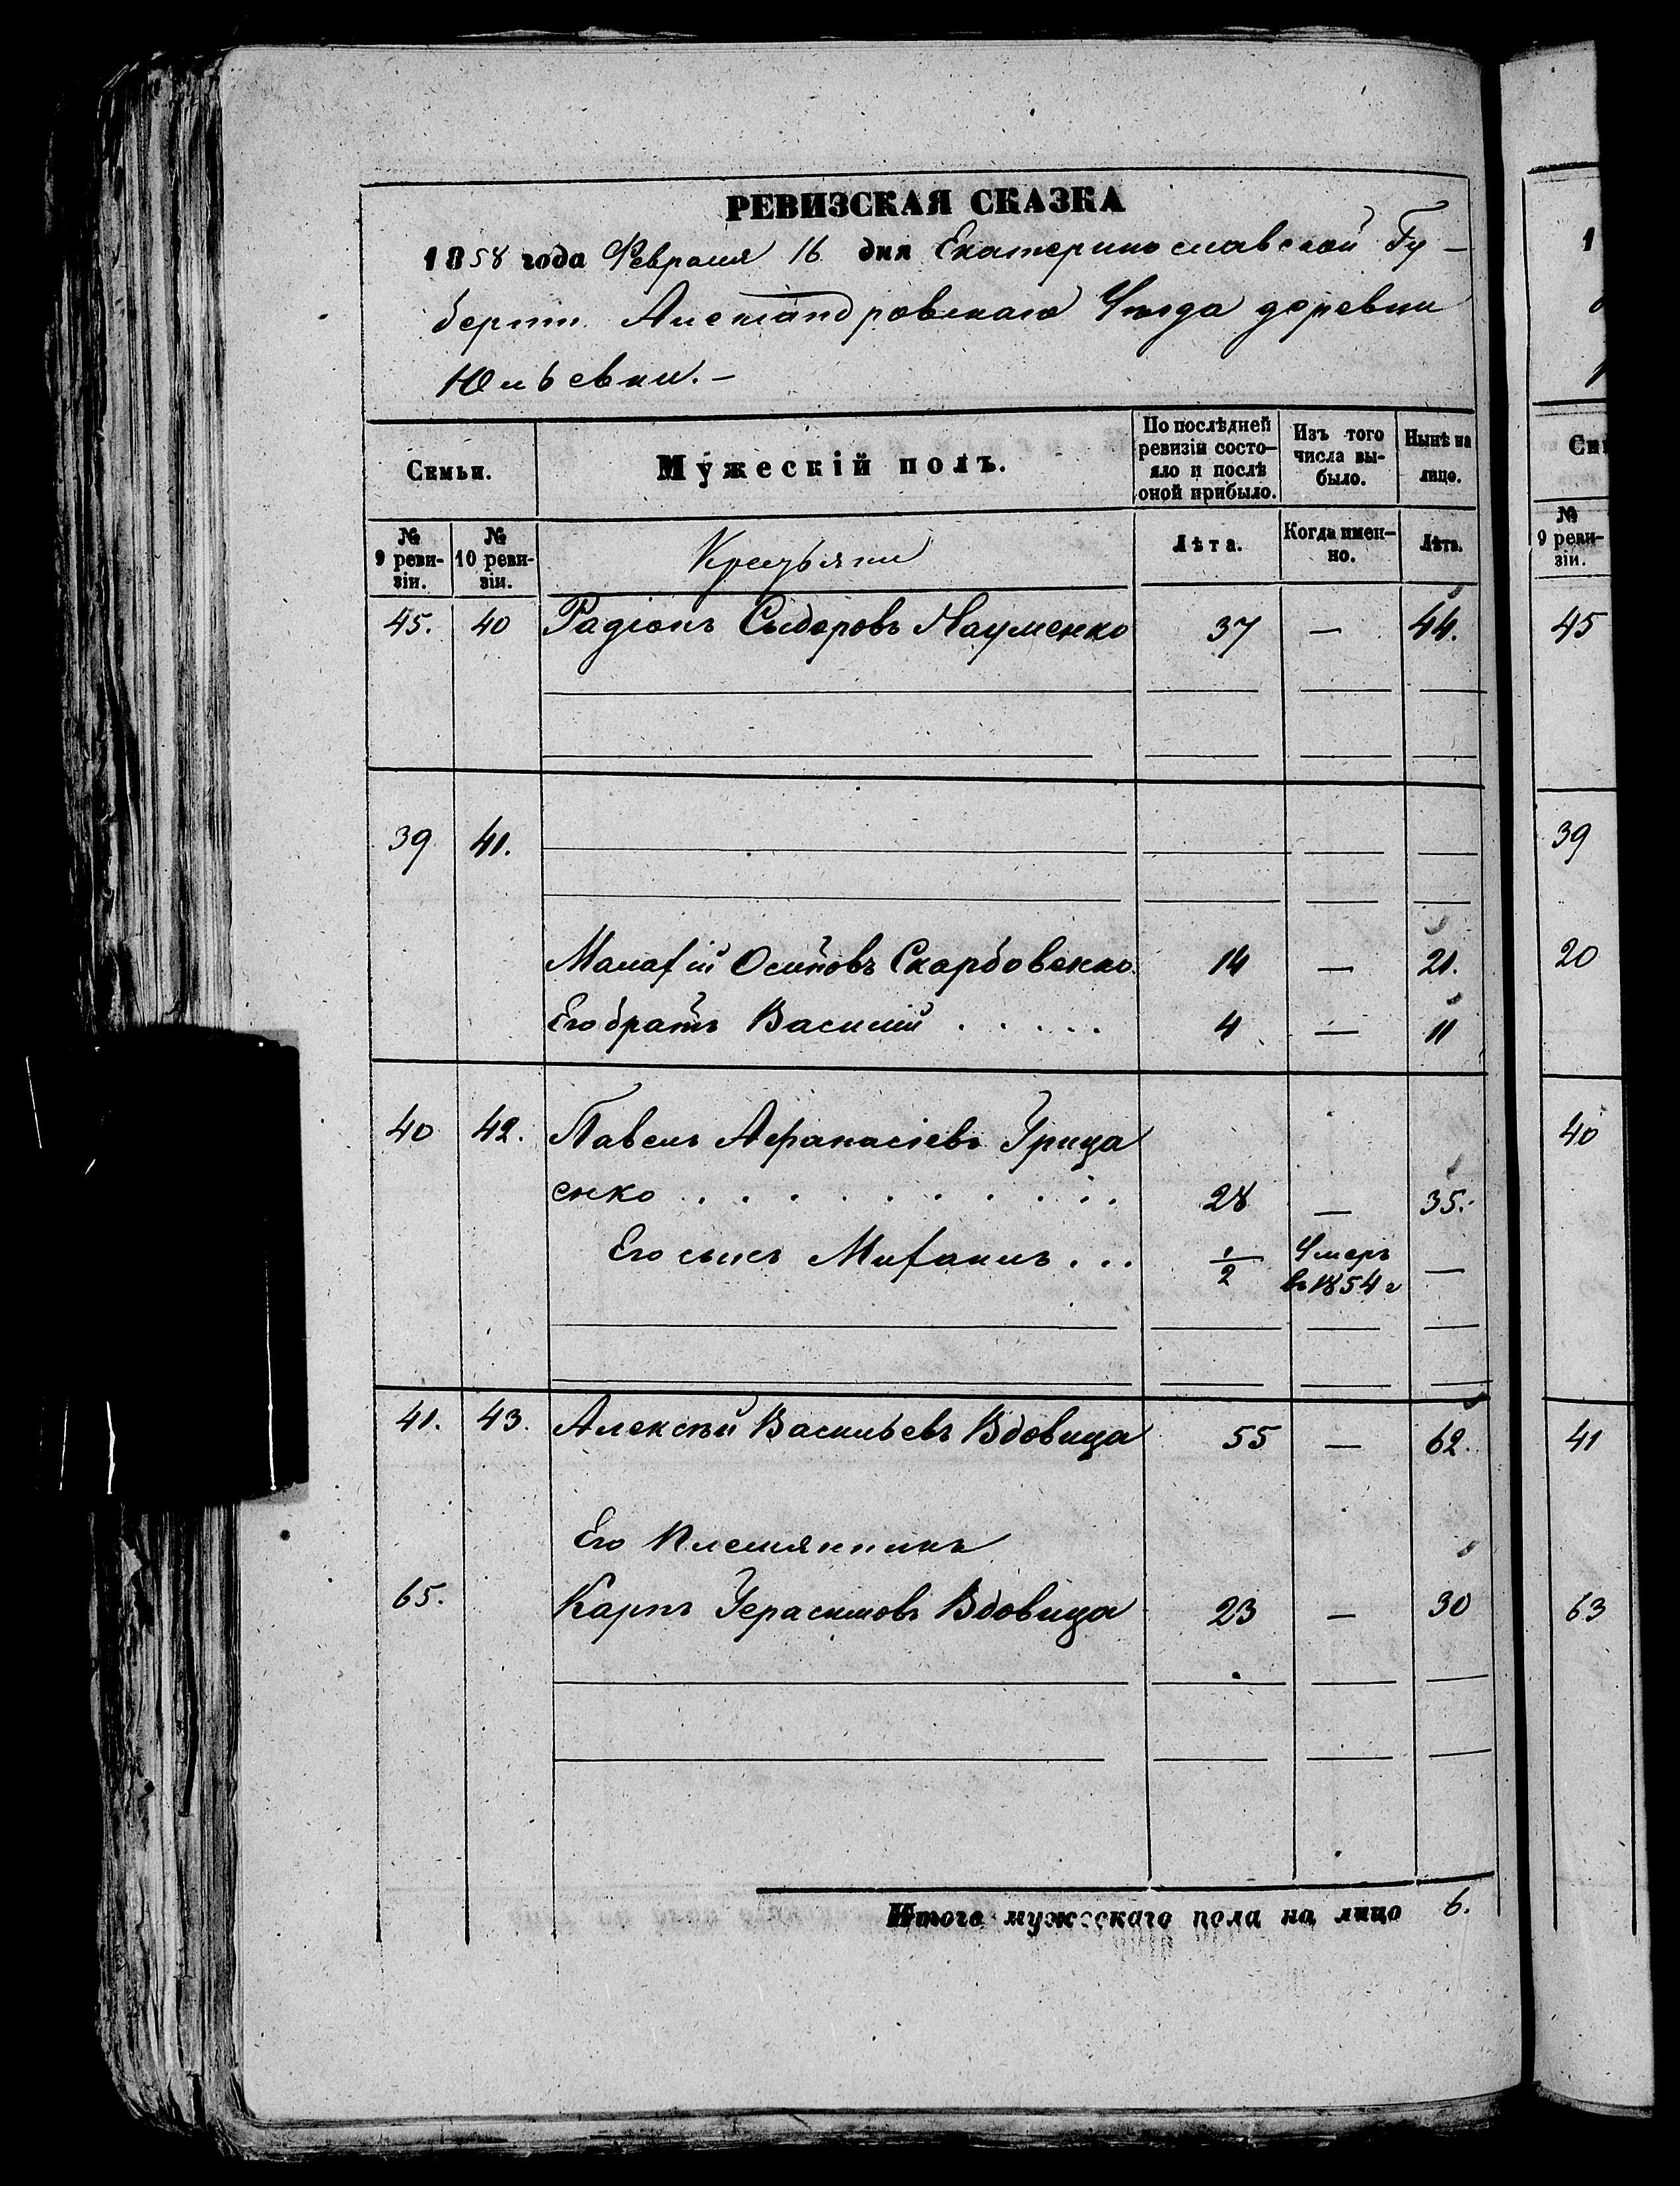 РЕВИЗСКАЯ СКАЗКА
1858 года Февраля 16 дня Екатеринославской Гу-
берніи Александровскаго Уѣзда деревни
Юльевки.-
Семьи. Мужескій полъ. По послѣдней ревизіи состояло и послѣ оной прибыло. Изъ того числа выбыло. Нынѣ на лицо.
№ 9 ревизіи. № 10 ревизіи. Крестьяни Лѣта. Когда именно. Лѣта.
45. 40 Радіонъ Сыдоровъ Науменко 37 — 44.
39 41.
Малафій Осиповъ Скарбовенко 14 — 21.
Его братъ Василій . . . . . 4 — 11
40 42. Павелъ Афанасіевъ Грица
енко . . . . . . . . . . 28 — 35.
Его сынъ Митанилъ . . . 1/2 Умеръ въ 1854 г —
41. 43. Алексѣй Васильевъ Вдовица 55 — 62.
Его Племянникъ
65. Карпъ Герасимовъ Вдовица 23 — 30
Итого мужескаго пола на лицо 6.
1
Сем
№ 9 ревизіи.
45
39
20
40
41
63